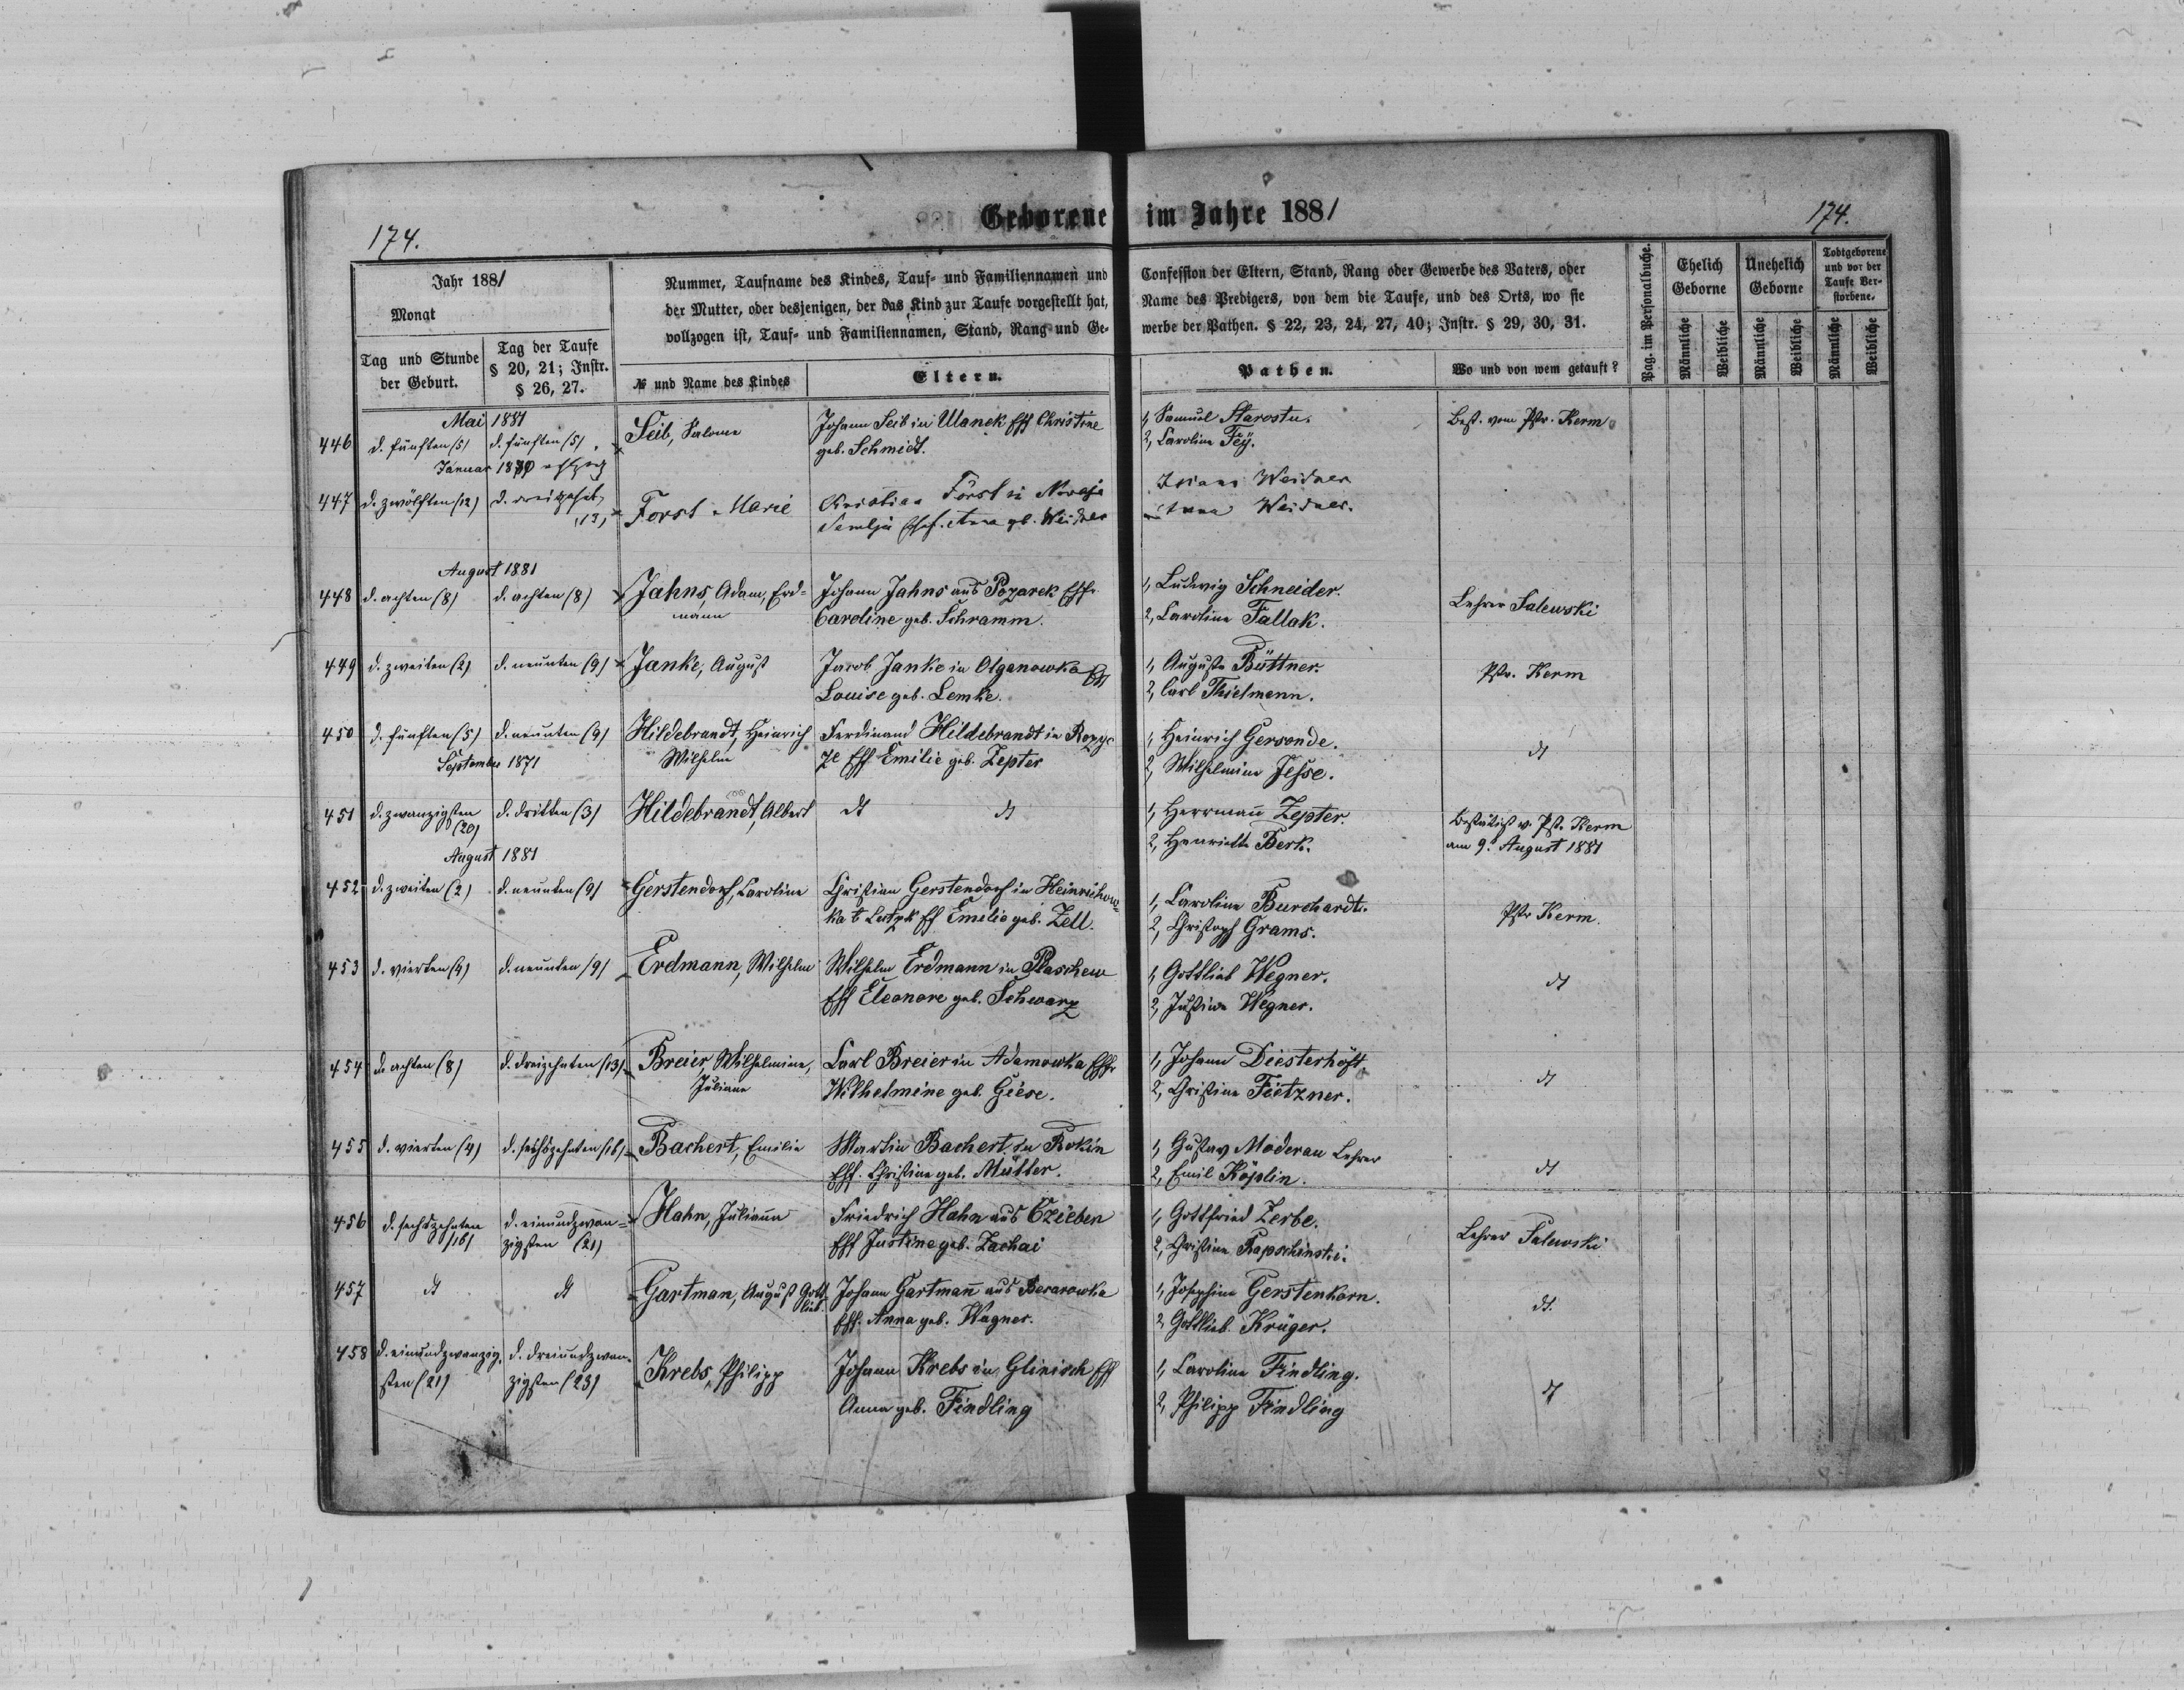 Geborene im Jahre 1881
174.
174.
Jahr 1881
Monat
Tag und Stunde der Geburt.
Tag der Taufe § 20, 21; Instr. § 26, 27.
Nummer, Taufname des Kindes, Tauf- und Familiennamen und
der Mutter, oder desjenigen, der das Kind zur Taufe vorgestellt hat,
vollzogen ist, Tauf- und Familiennamen, Stand, Rang und Ge-
№ und Name des Kindes
Eltern.
Confession der Eltern, Stand, Rang oder Gewerbe des Vaters, oder
Name des Predigers, von dem die Taufe, und des Orts, wo sie
werbe der Pathen. § 22, 23, 24, 27, 40; Instr. § 29, 30, 31.
Pathen.
Wo und von wem getauft?
Pag. im Personalbuche.
Ehelich Geborne
Unehelich Geborne
Todtgeborene und vor der Taufe Verstorbene.
Männliche Weibliche Männliche Weibliche Männliche Weibliche
Mai 1881
446 d. fünften (5) d. fünften (5) Seib, Salome Johann Seib in Ulanek Eff Christine 1, Samuel Starostu. Best. vom Pstr. Kerm
geb. Schmidt. 2, Caroline Fey.
Januar
447 d. zwölften (12) (13) Forst Marie Christian Först in Novaja Weidner
Semlja Ehf. Anna gb. Weidner Anna Weidner.
August 1881
448 d. achten (8) d. achten (8) Jahns, Adam, Erd- Johann Jahns aus Pozarek Eff. 1, Ludwig Schneider. Lehrer Salewski
mann Caroline geb. Schramm. 2, Caroline Fallak.
449 d. zweiten (2) d. neunten (9) Janke, August Jacob Janke in Olganowka Eff 1, Auguste Büttner. Pstr. Kerm
Louise geb. Lemke. 2, Carl Thielmann.
450 d. fünften (5) d. neunten (9) Hildebrandt, Heinrich Ferdinand Hildebrandt in 1, Heinrich Gersonde. dt
Wilhelm Eff Emilie geb. Zepter 2, Wilhelmine Jesse.
September 1871
451 d. zwanzigsten d. dritten (3) Hildebrandt, Albert dt dt 1, Herrmann Zepter. Bestätigt v. Pst. Kerm
(20) 2, Henriette Berk. am 9. August 1881
August 1881
452 d. zweiten (2) d. neunten (9) Gerstendorf, Caroline Christian Gerstendorf in Heinrichow- 1, Caroline Burchardt. Pstr Kerm.
ka Eff Emilie geb. Zell. 2, Christoph Grams.
453 d. vierten (4) d. neunten (9) Erdmann, Wilhelm Wilhelm Erdmann in Plaschew 1, Gottlieb Wegner. dt
Eff Eleonore geb. Schwarz 2, Justine Wegner.
454 d. achten (8) d. dreizehnten (13) Breier, Wilhelmine, Carl Breier in Adamowka Eff. 1, Johann Diesterhöft. dt
Juliane Wilhelmine geb. Giese. 2, Christine Fietzner.
455 d. vierten (4) d. sechszehnten (16) Bachert, Emilie Martin Bachert in Rokin 1, Gustav Moderau Lehrer dt
Eff. Christine geb. Mütter. 2, Emil Köplin.
456 d. sechszehnten d. einundzwan- Hahn, Julianna Friedrich Hahn aus Czieben 1, Gottfried Zerbe. Lehrer Salewski
(16) zigsten (21) Eff Justine geb. Zachai 2, Christine
457 dt dt Gartman, August Gott- Johann Gartmann aus 1, Josephine Gerstenkorn. dt.
lieb Eff. Anna geb. Wagner. 2, Gottlieb Krüger.
458 d. einundzwanzig- d. dreiundzwan- Krebs, Philipp Johann Krebs in Glinisch Eff 1, Caroline Findling. dt
sten (21) zigsten (23) Anna geb. Findling 2, Philipp Findling